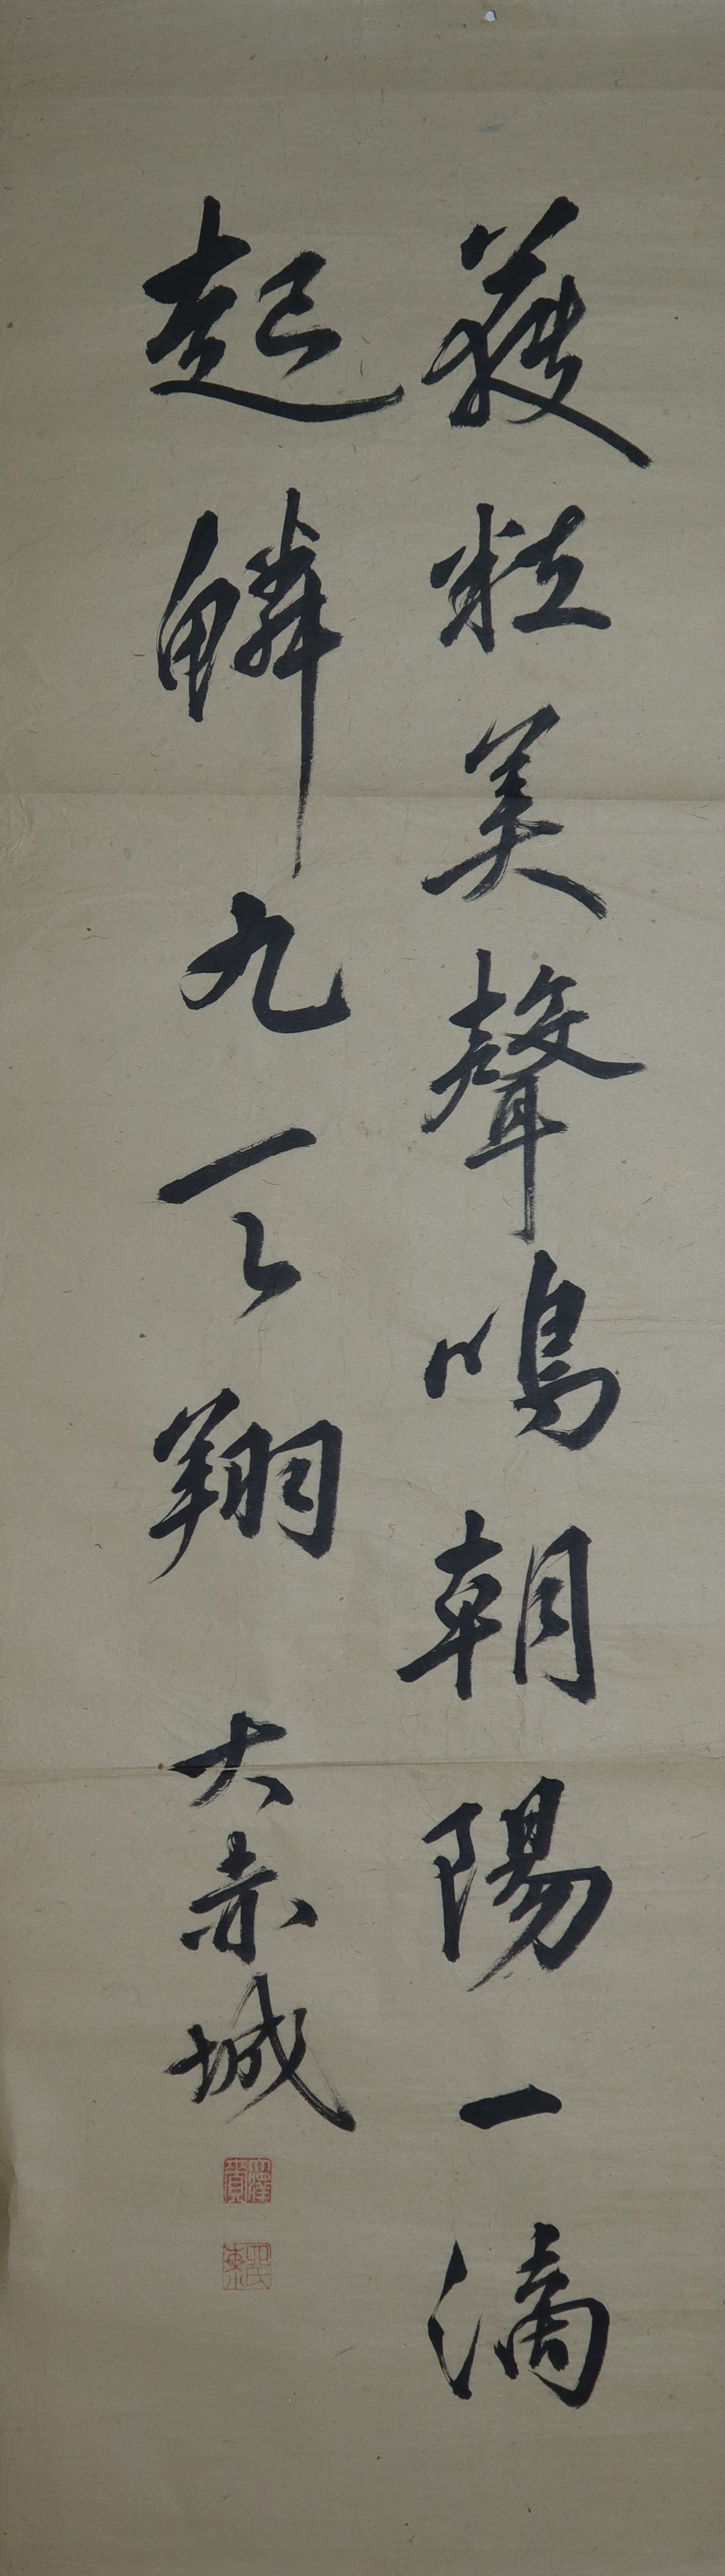 粒美聲鳴朝陽一滴
起鱗九天翔 大赤城